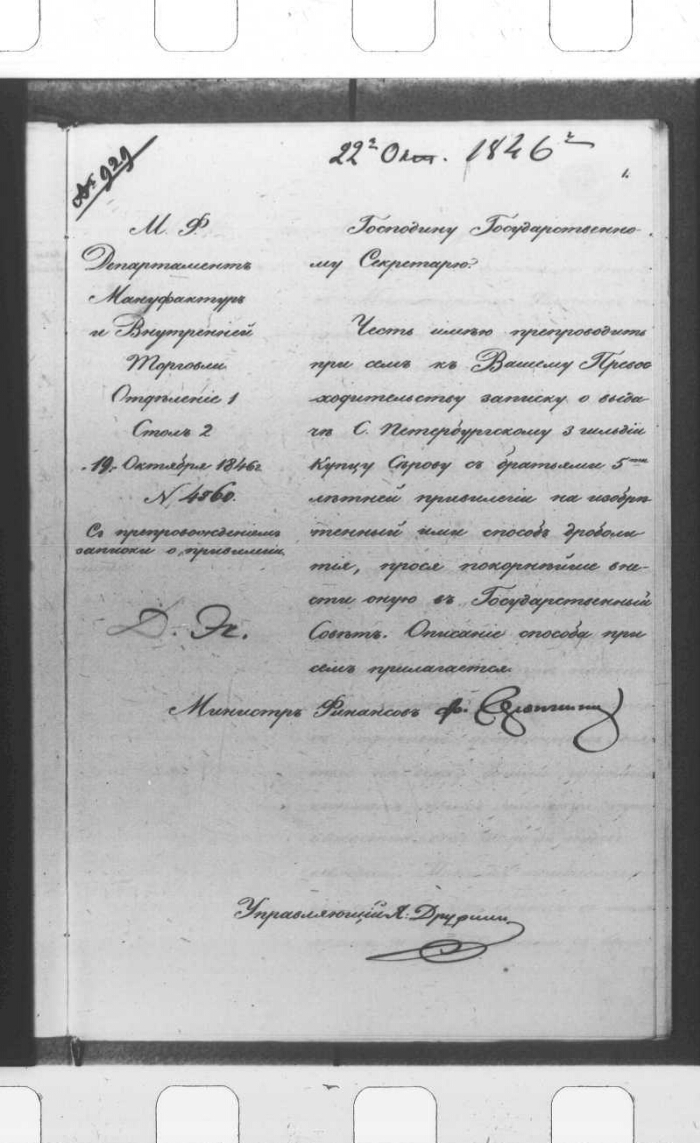 № 929
22го Окт. 1846г
1.
М. Ф.
Департаментъ
Мануфактуръ
и Внутренней
Торговли.
Отдѣленіе 1
Столъ 2
19. Октября 1846г
N 4560.
Съ препровожденіемъ
записки о привилегіи
Д. Эк.
Господину Государственно-
му Секретарю.
Честь имѣю препроводить
при семъ къ Вашему Превос
ходительству записку о выда
чѣ С. Петербургскому 3 гильдіи
Купцу Сѣрову съ братьями 5ти
лѣтней привилегіи на изобрѣ
тенный ими способъ дроболи
тія, прося покорнѣйше вне-
сти оную въ Государственный
Совѣтъ. Описаніе способа при
семъ прилагается.
Министръ Финансовъ
Управляющій А: